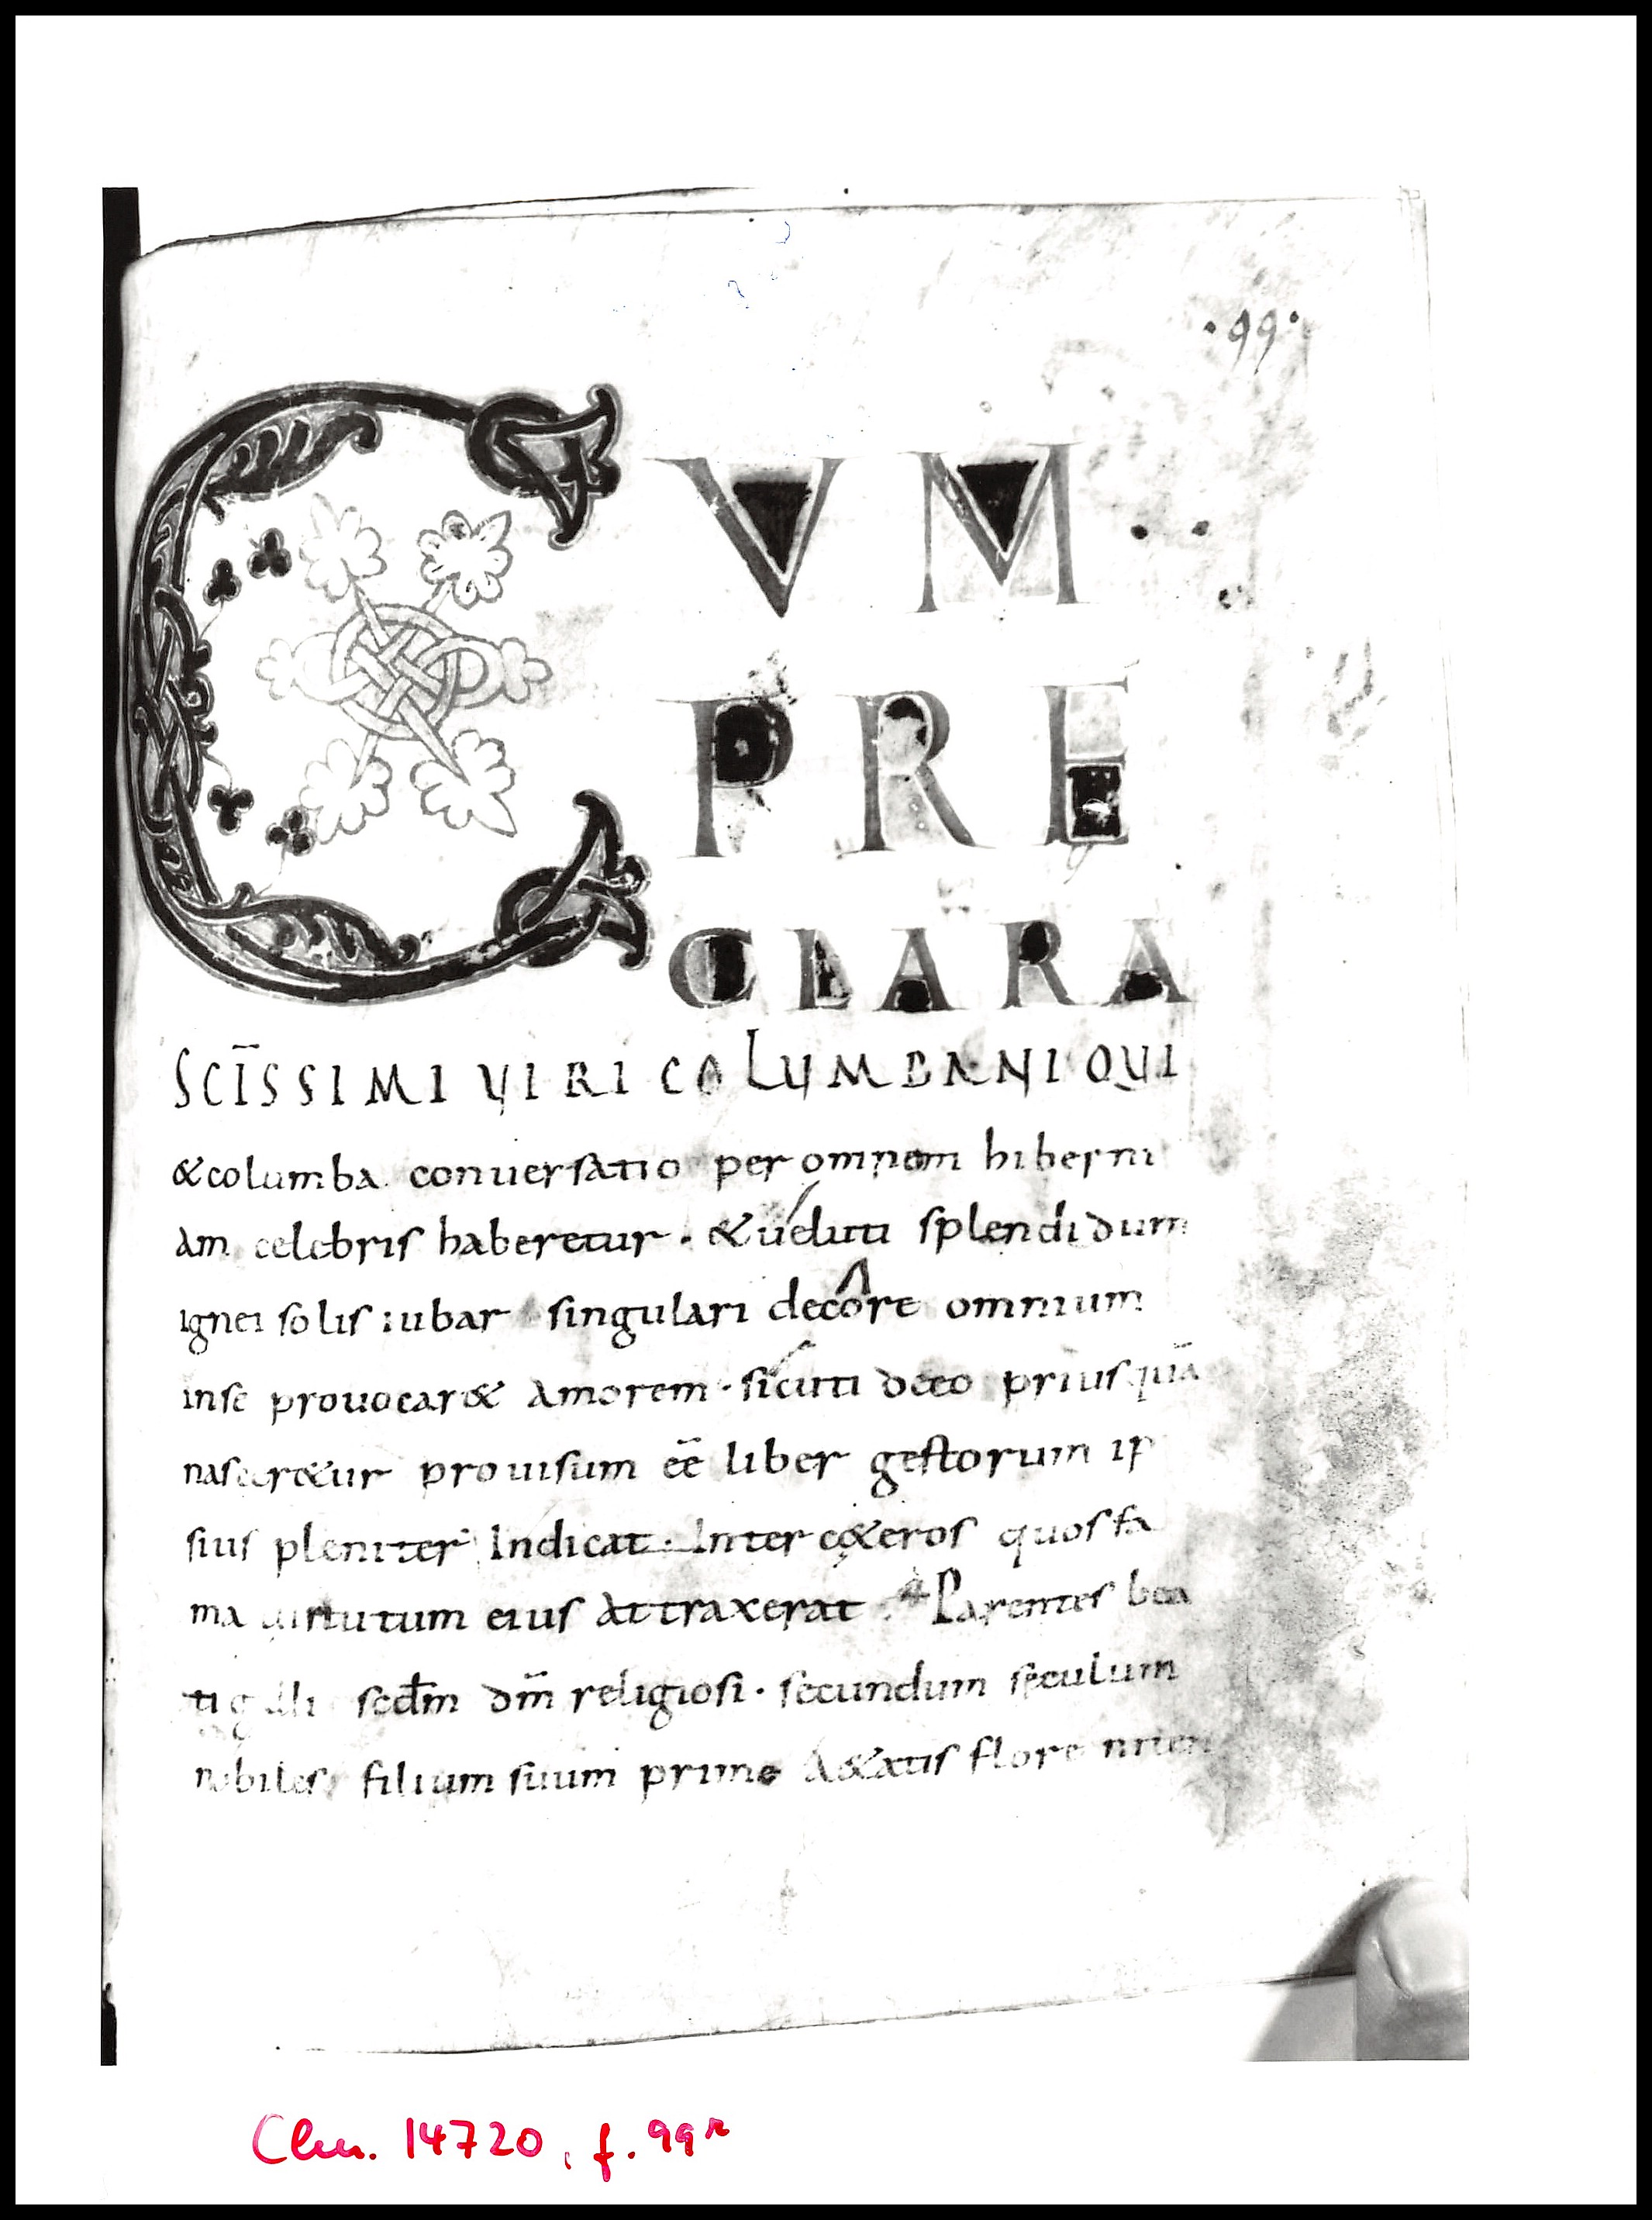 ·99·
CVM
PRE
CLARA
SCĪSSIMI VIRI COLUMBANI QUI
&columba conuersatio per omnem hiberni
am celebris haberetur · & ueluti splendidum
ignei solis iubar singulari decore omnium
inse prouocar& amorem · sicuti deeo priusquā
nascer&ur prouisum eē liber gestorum ip
sius pleniter Indicat · Inter c&eros quos fa
ma uirtutum eius attraxerat · Parentes bea
ti galli secdm dm̄ religiosi · secundum seculum
nobiles filium suum primo a&atis flore niten
Clm. 14720, f. 99r